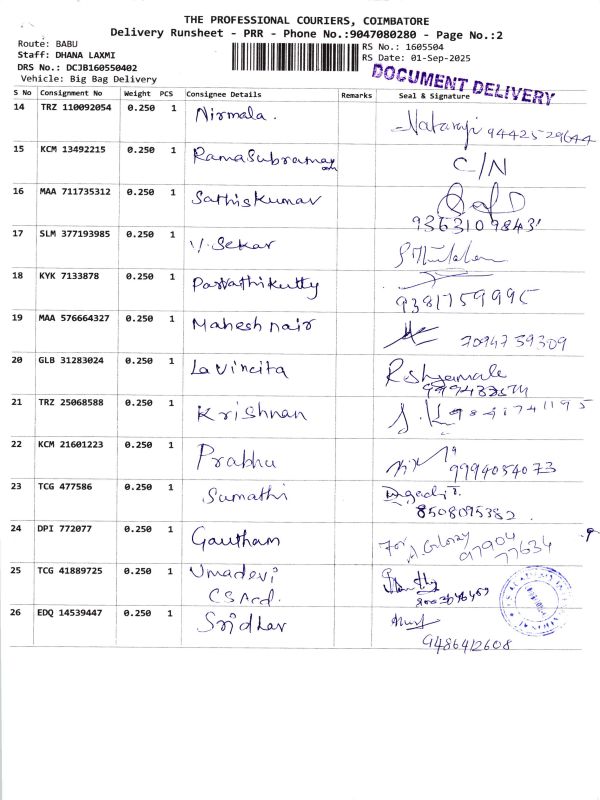 THE PROFESSIONAL COURIERS, COIMBATORE
Delivery Runsheet - PRR - Phone No.:9047080280 - Page No.:2
Route: BABU
RS No.: 1605504
Staff: DHANA LAXMI
RS Date: 01-Sep-2025
DRS No.: DCJB160550402
Vehicle: Big Bag Delivery
DOCUMENT DELIVERY
S No Consignment No Weight PCS Consignee Details Remarks Seal & Signature
14 TRZ 110092054 0.250 1 Nirmala. Nataraji 9442529644
15 KCM 13492215 0.250 1 Ramasubramay C/N
16 MAA 711735312 0.250 1 Sathiskumar
9363109843
17 SLM 377193985 0.250 1 V. Sekar
18 KYK 7133878 0.250 1 Parvathikutty
938175999
19 MAA 576664327 0.250 1 Mahesh nair 7094759309
20 GLB 31283024 0.250 1 Lavincita
21 TRZ 25068588 0.250 1 Krishnan
22 KCM 21601223 0.250 1 Prabhu 9994054073
23 TCG 477586 0.250 1 Sumathi
8508095382
24 DPI 772077 0.250 1 Gautham For
97904
77634
25 TCG 41889725 0.250 1 Umadevi
26 EDQ 14539447 0.250 1 Sridhar
9486412608